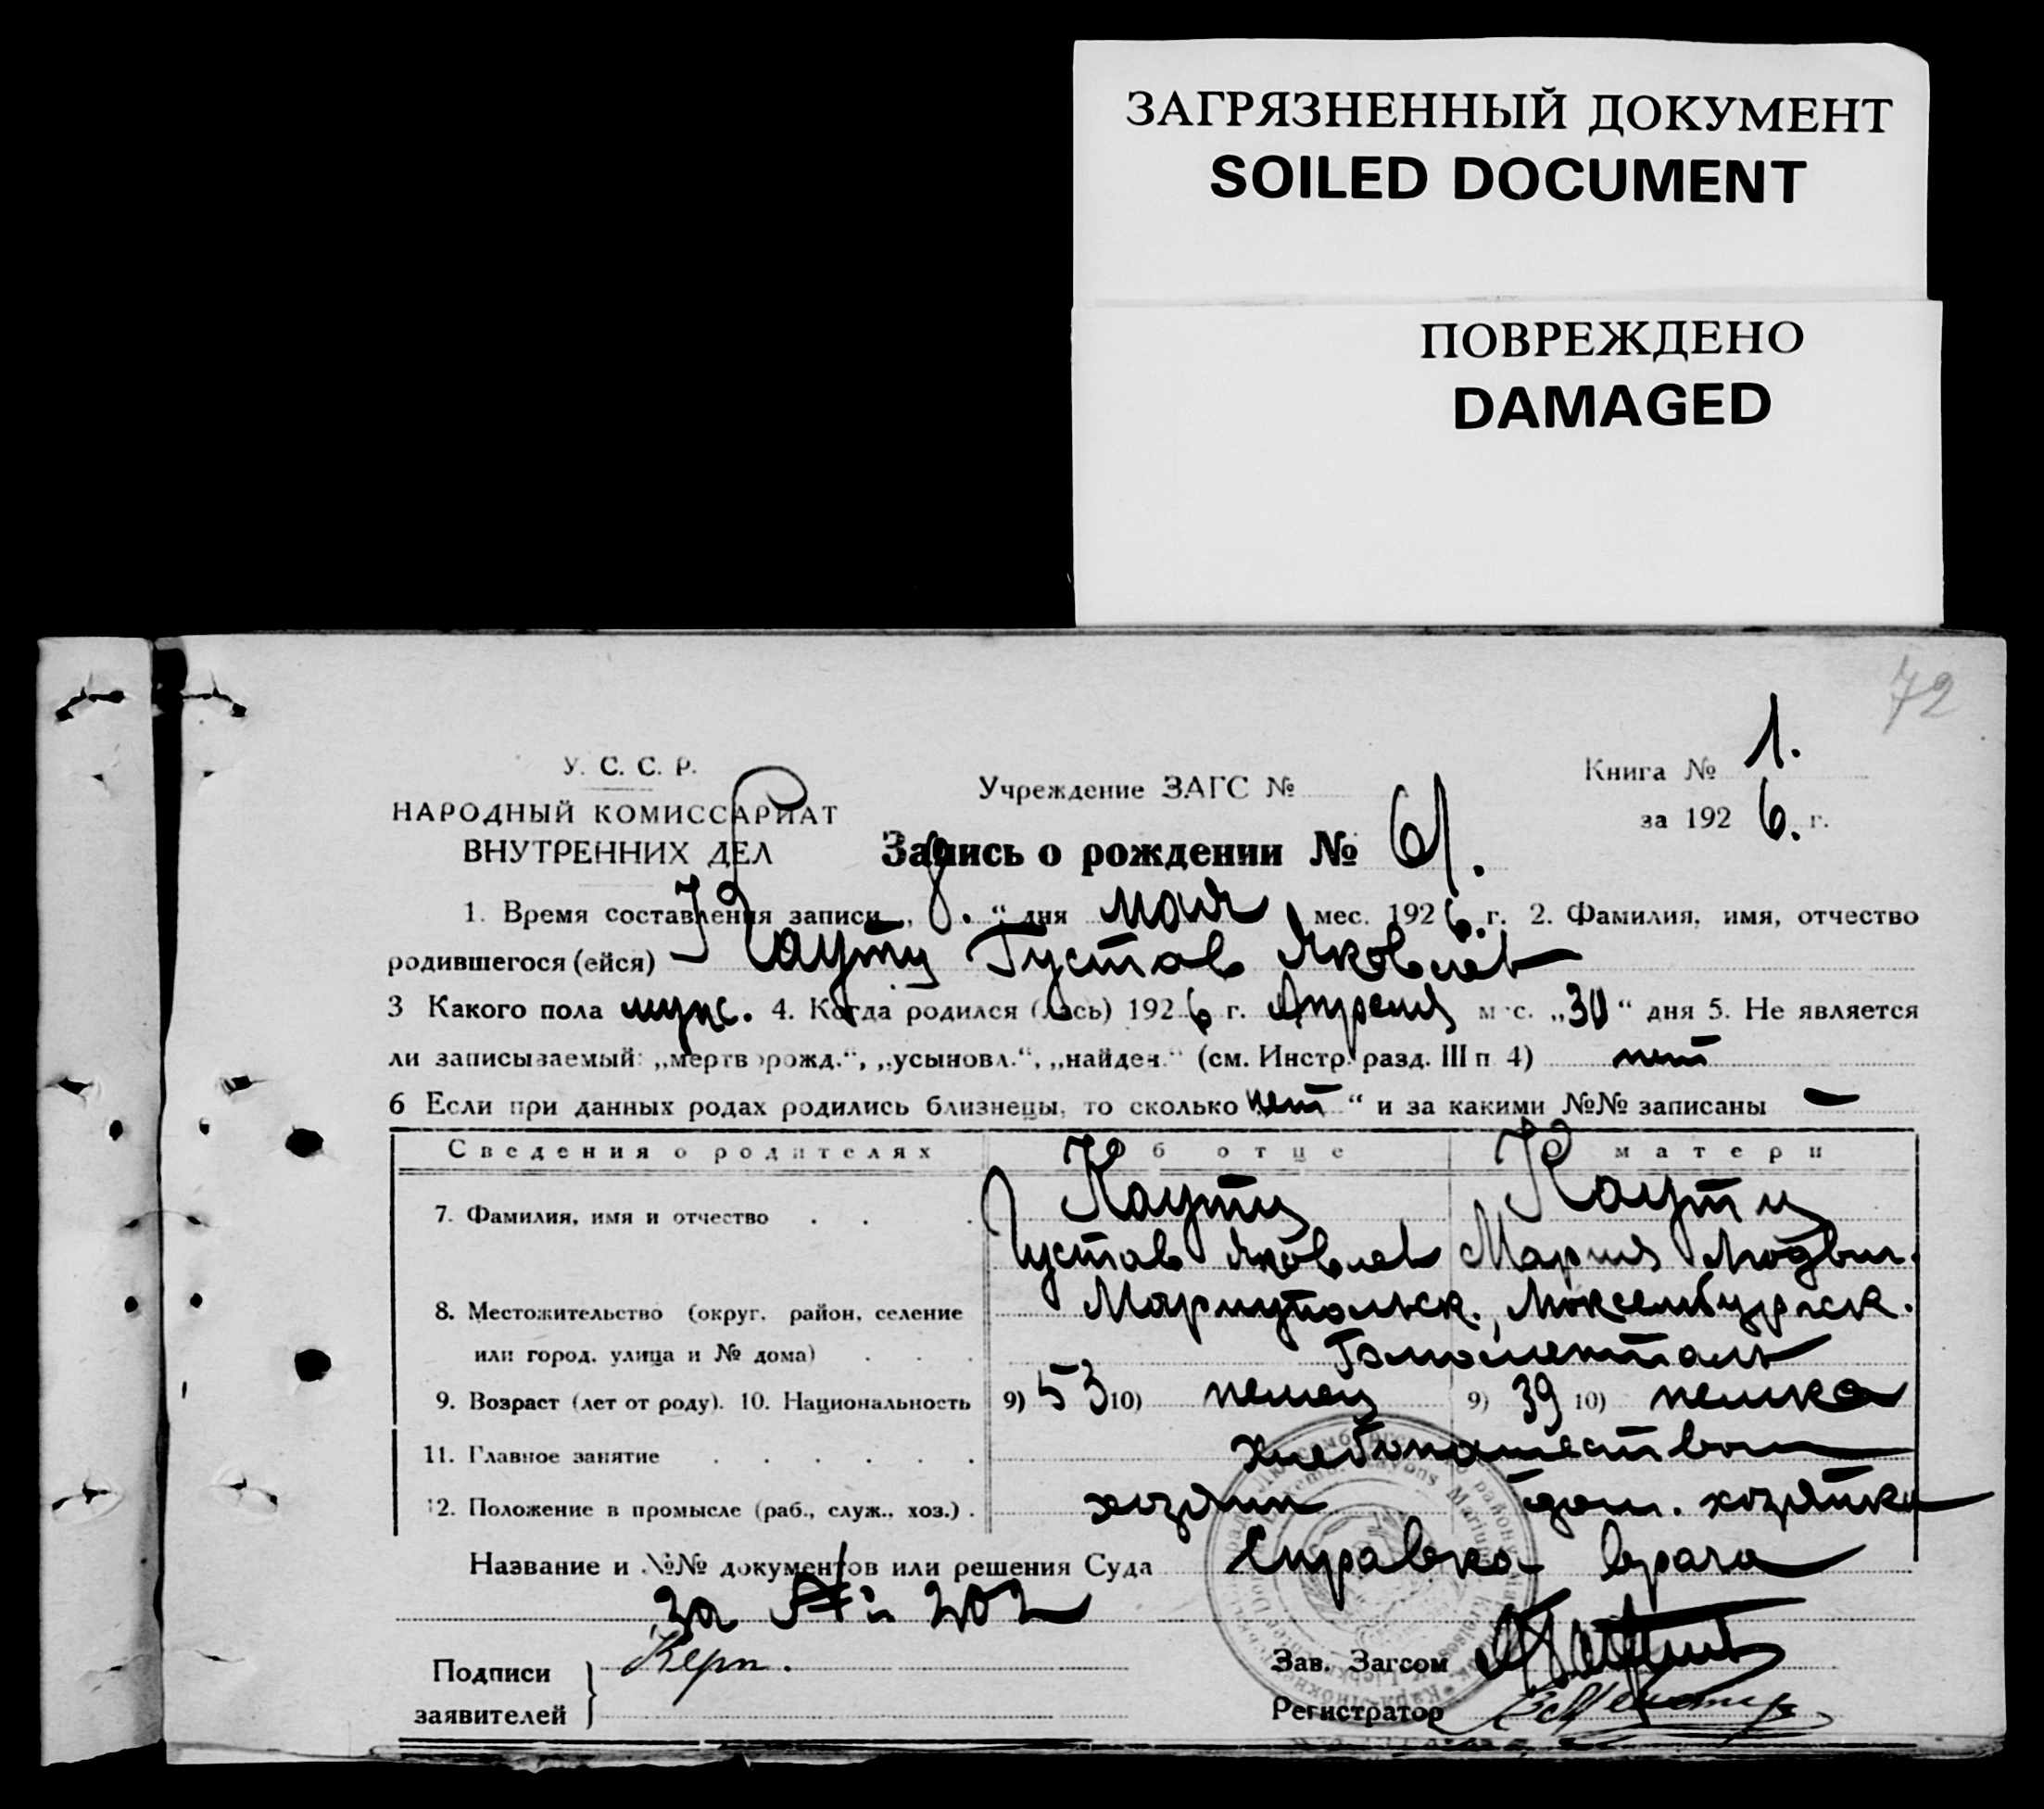 ЗАГРЯЗНЕННЫЙ ДОКУМЕНТ
SOILED DOCUMENT
ПОВРЕЖДЕНО
DAMAGED
72
У. С. С. Р.
НАРОДНЫЙ КОМИССАРИАТ
ВНУТРЕННИХ ДЕЛ
Учреждение ЗАГС №
Книга № 1.
за 1926. г.
Запись о рождении № 61.
1. Время составления записи „8.“ дня мая мес. 1926. г. 2. Фамилия, имя, отчество
родившегося (ейся) Каутц Густав Яковлев
3 Какого пола мужс. 4. Когда родился (лась) 1926 г. Апреля м с. „30“ дня 5. Не является
ли записываемый: „мертворожд.“, „усыновл.“, „найден.“ (см. Инстр. разд. III п 4) нет
6 Если при данных родах родились близнецы, то сколько нет “ и за какими №№ записаны —
Сведения о родителях Об отце О матери
7. Фамилия, имя и отчество . . . Каутц Каутц
Густав Яковлев Мария Людви.
8. Местожительство (округ, район, селение Мариупольск., Люксембургск.
или город, улица и № дома) . . .
9. Возраст (лет от роду). 10. Национальность 9) 53 10) немец 9) 39 10) немка
11. Главное занятие . . . . . . хлебопашество
12. Положение в промысле (раб., служ., хоз.) . хозяин дом. хозяйка
Название и №№ документов или решения Суда Справка врача
за № 202
Подписи
заявителей
Керн.
Зав. Загсом
Регистратор